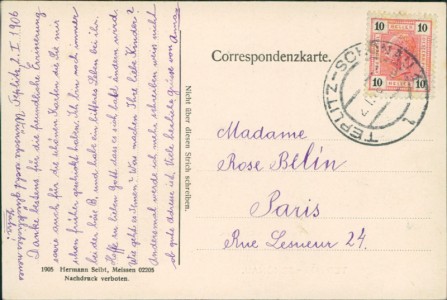 Correspondenzkarte.
10 10
HELLER HELLER
10 10
TEPLITZ-SCHÖNAU 1
Madame
Rose Belin
Paris
Rue Lesueur 24.
Nicht über diesen Strich schreiben.
Teplitz 2. I. 1906
Wünsche wohl glückliches neues
Jahr!
Danke bestens für die freundliche Erinnerung
sowie auch für die schönen Karten die Sie mir
schon früher geschickt haben. Ich bin noch immer
bei der und habe ein bitteres Leben bei ihr.
Hoffe zu lieben Gott dass es sich bald ändern wird.
Wie geht es Ihnen? Was machen Ihre liebe Kinder?
Andersmal werde ich mehr schreiben wenn ich
ob gute Adresse ist. Viele herzliche Grüsse von Anna
1905 Hermann Seibt, Meissen 02205
Nachdruck verboten.